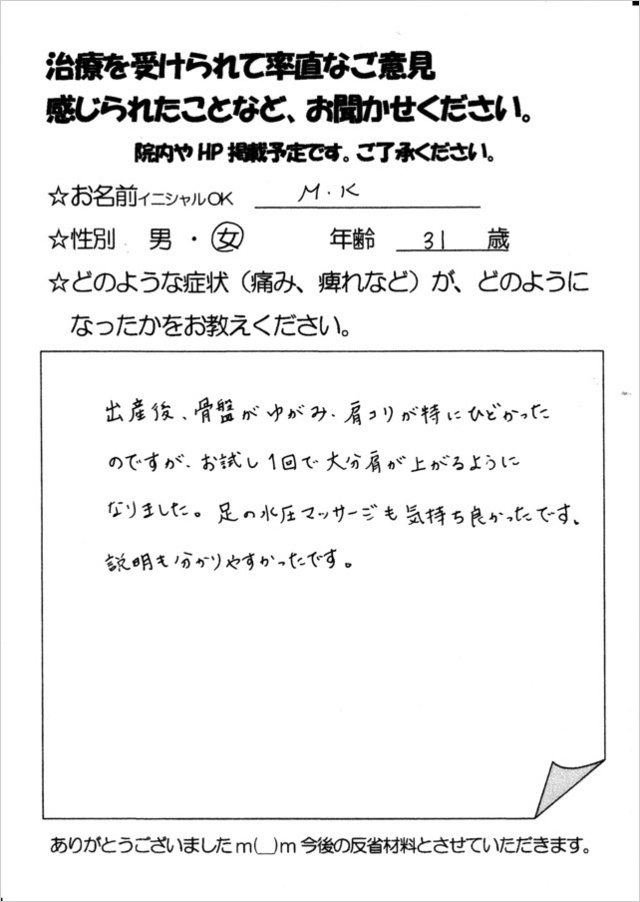 治療を受けられて率直なご意見
感じられたことなど、お聞かせください。
院内やHP掲載予定です。ご了承ください。
☆お名前イニシャルOK M.K
☆性別 男・女 年齢 31 歳
☆どのような症状（痛み、痺れなど）が、どのように
なったかをお教えください。
出産後、骨盤がゆがみ、肩コリが特にひどかった
のですが、お試し1回で大分肩が上がるように
なりました。足の水圧マッサージも気持ち良かったです、
説明も分かりやすかったです。
ありがとうございましたm(__)m今後の反省材料とさせていただきます。